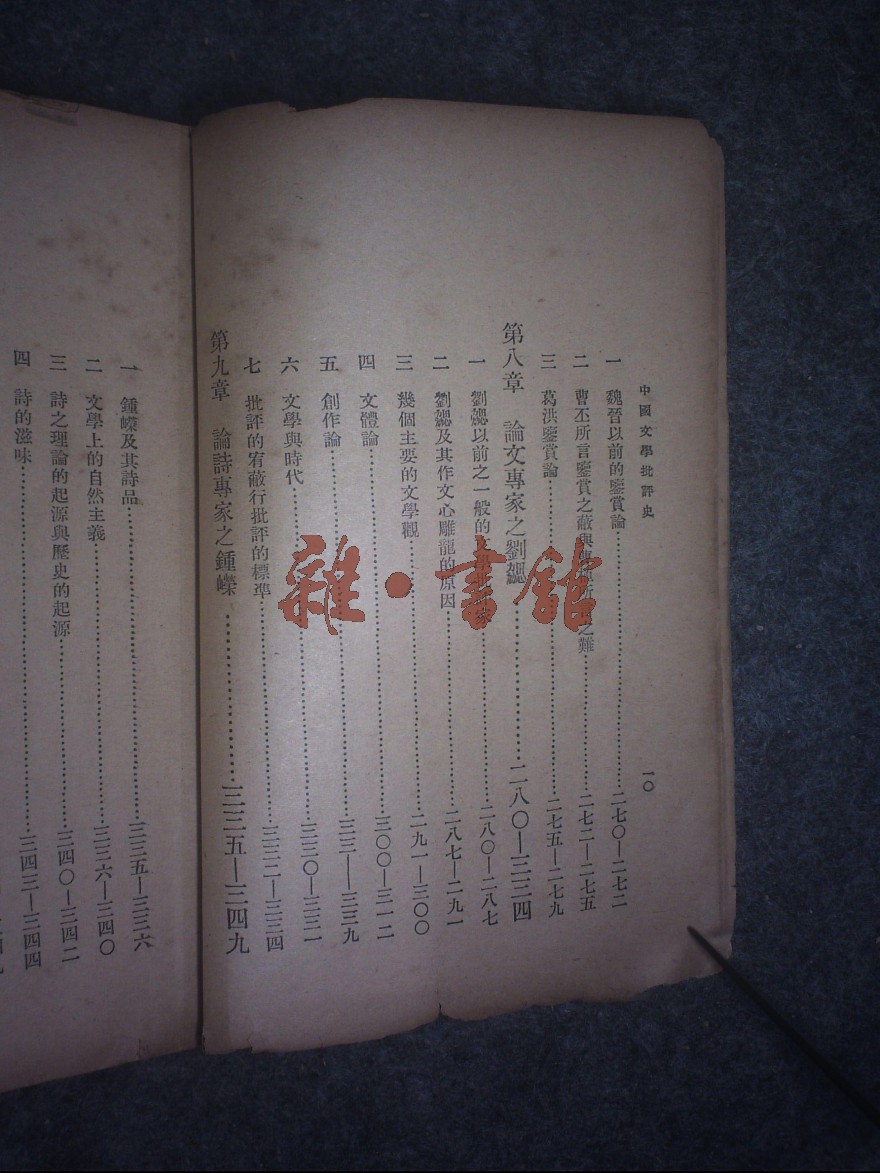 中國文學批評史
一〇
一 魏晉以前的鑒賞論……二七〇—二七二
二 曹丕所言鑒賞之蔽與 之難……二七二—二七五
三 葛洪鑒賞論……二七五—二七九
第八章 論文專家之劉勰……二八〇—三三四
一 劉勰以前之一般的文學批……二八〇—二八七
二 劉勰及其作文心雕龍的原因……二八七—二九一
三 幾個主要的文學觀……二九一—三〇〇
四 文體論……三〇〇—三一二
五 創作論
六 文學與時代……三三〇—三三一
七 批評的宥蔽行批評的標準……三三二—三三四
第九章 論詩專家之鍾嶸……三三五—三四九
一 鍾嶸及其詩品……三三五—三三六
二 文學上的自然主義……三三六—三四〇
三 詩之理論的起源與歷史的起源……三四〇—三四二
四 詩的滋味……三四三—三四四
雜·書館